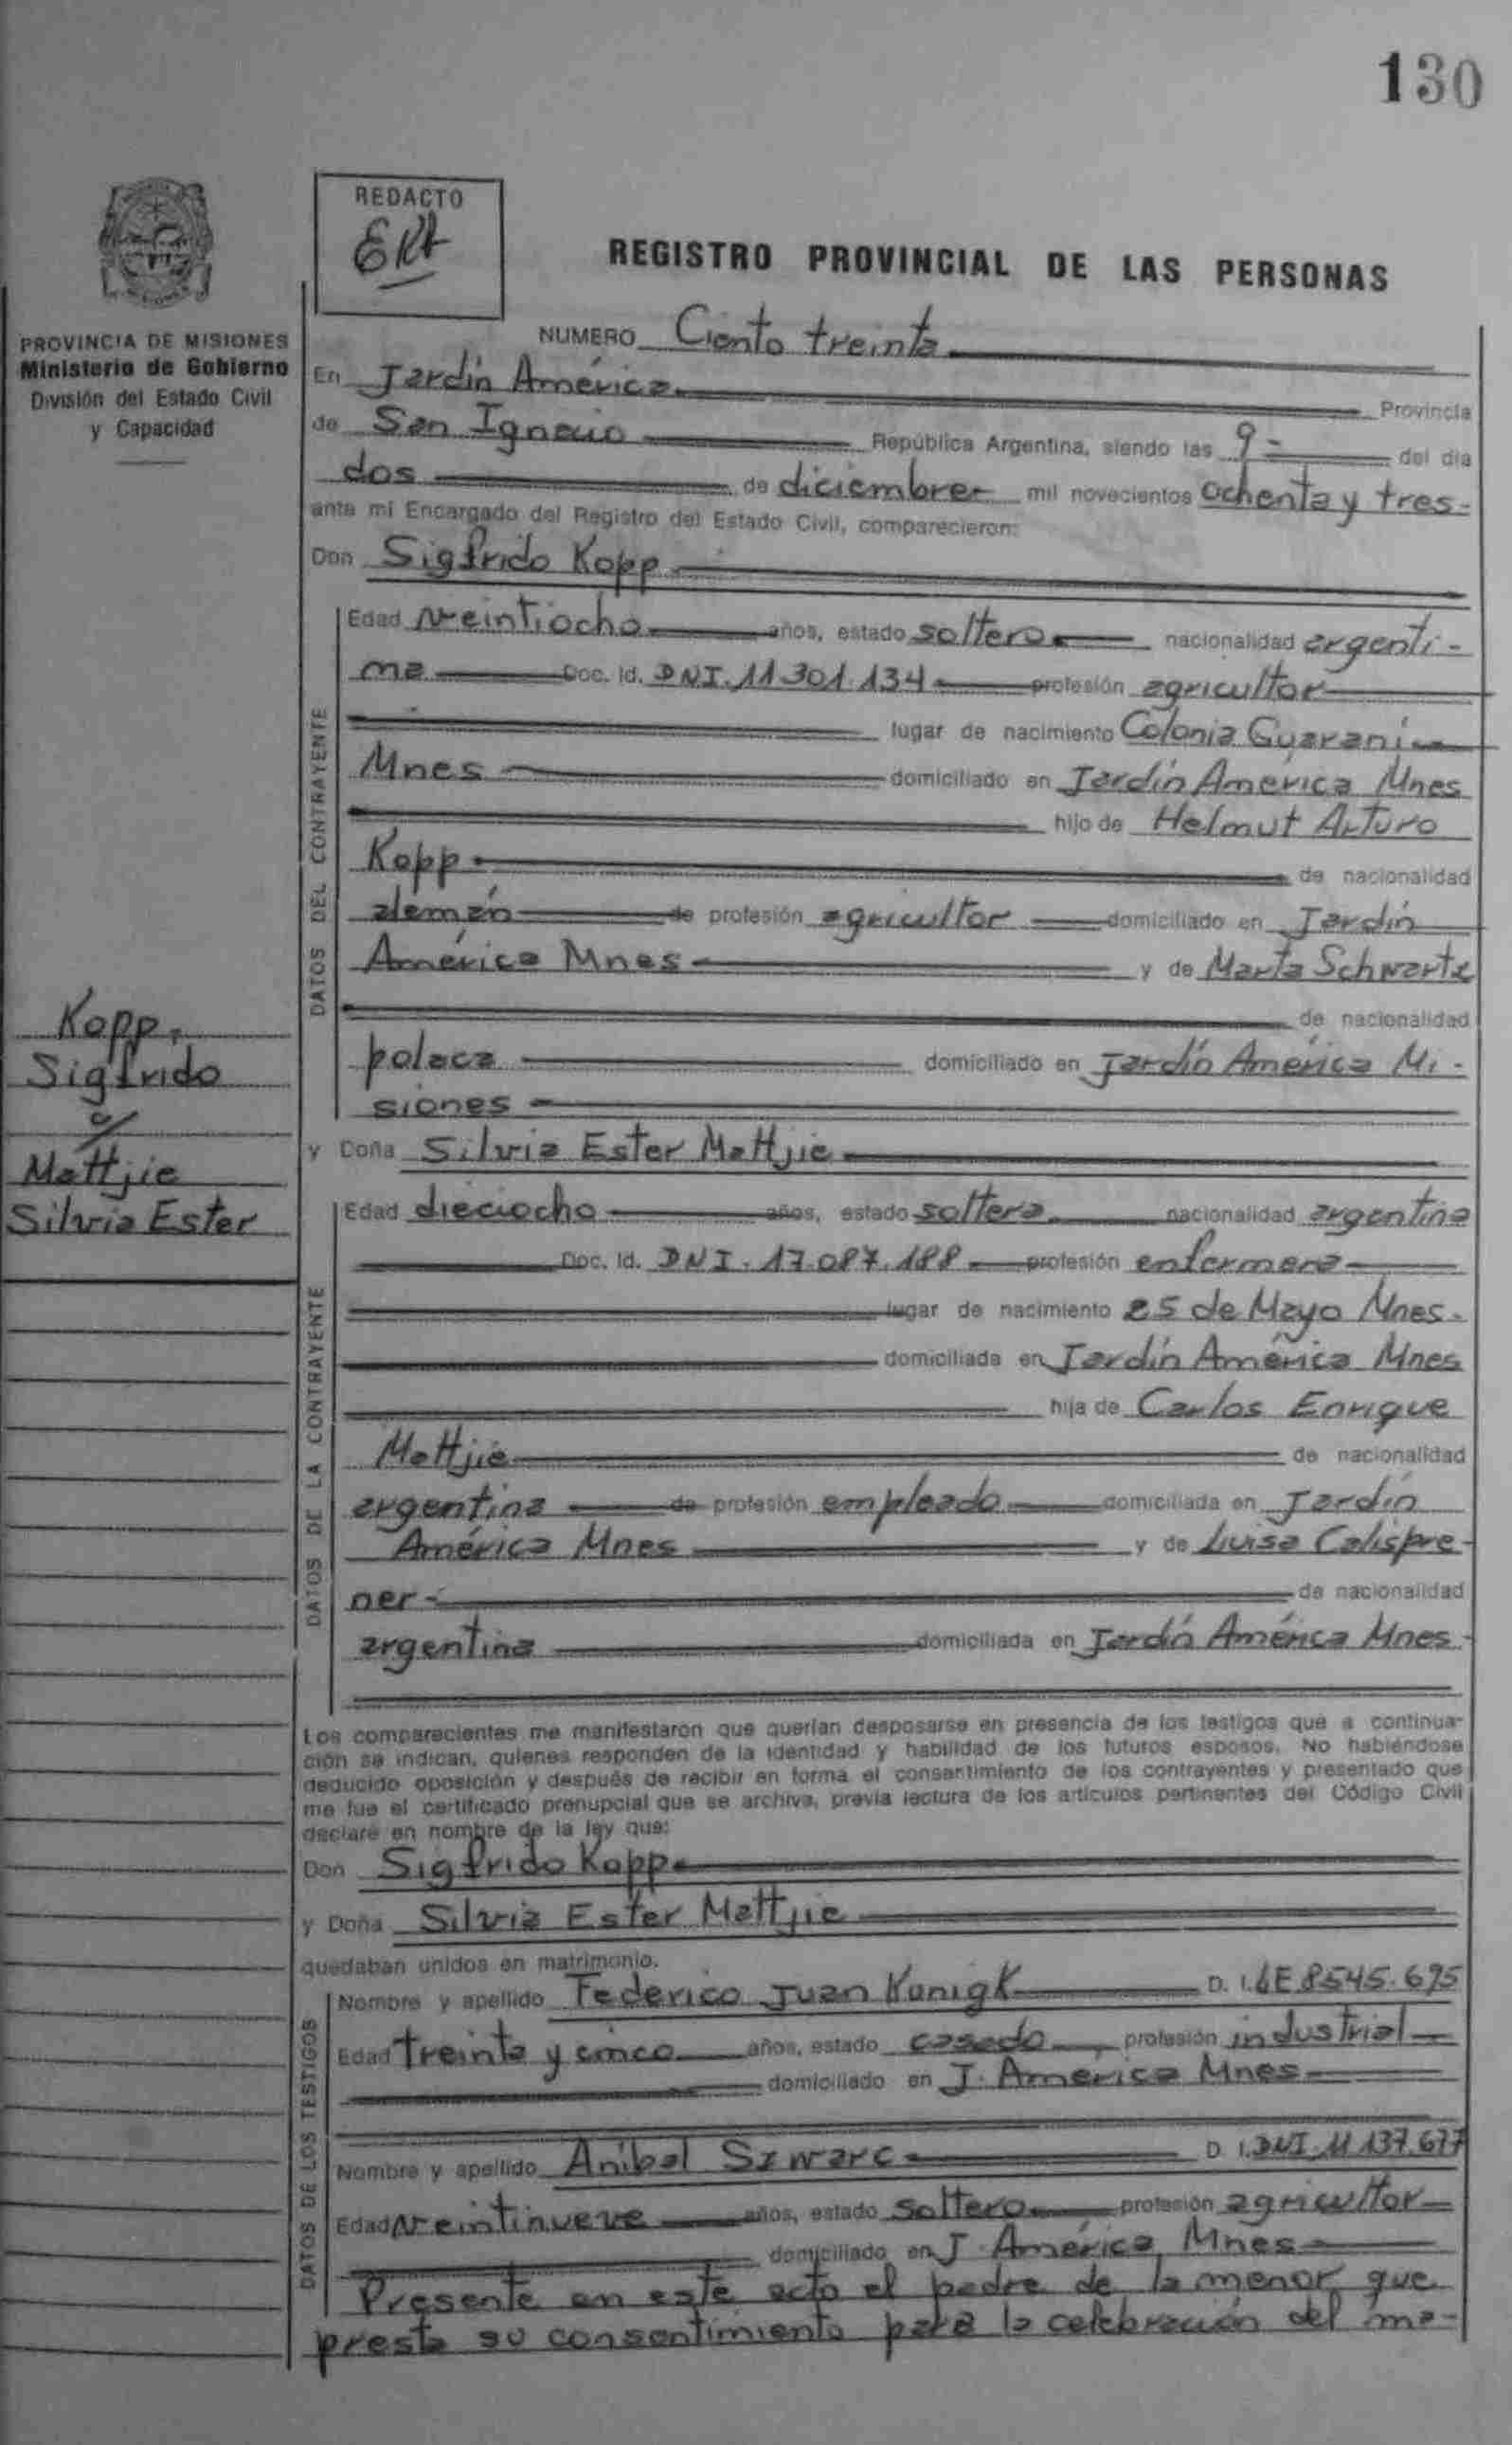 130
REDACTO
REGISTRO PROVINCIAL DE LAS PERSONAS
PROVINCIA DE MISIONES
Ministerio de Gobierno
División del Estado Civil
y Capacidad
NUMERO Ciento treinta
En Jardín América Provincia
de San Ignacio República Argentina, siendo las 9- del día
dos de diciembre mil novecientos ochenta y tres-
ante mi Encargado del Registro del Estado Civil, comparecieron:
Don Sigfrido Kopp
DATOS DEL CONTRAYENTE
Edad veintiocho años, estado soltero nacionalidad argenti-
na Doc. Id. DNI. 11.301.134 profesión agricultor
lugar de nacimiento Colonia Guaraní
Mnes domiciliado en Jardín América Mnes
hijo de Helmut Arturo
Kopp de nacionalidad
alemán de profesión agricultor domiciliado en Jardín
América Mnes y de Marta Schwartz
de nacionalidad
polaca domiciliado en Jardín América Mi-
siones
Kopp,
Sigfrido
c/
Mattjie
Silvia Ester
y Doña Silvia Ester Mattjie
DATOS DE LA CONTRAYENTE
Edad dieciocho años, estado soltera nacionalidad argentina
Doc. Id. DNI. 17.087.188 profesión enfermera
lugar de nacimiento 25 de Mayo Mnes.
domiciliada en Jardín América Mnes
hija de Carlos Enrique
Mattjie de nacionalidad
argentina de profesión empleado domiciliada en Jardín
América Mnes y de Luisa Calispre-
ner- de nacionalidad
argentina domiciliada en Jardín América Mnes-
Los comparecientes me manifestaron que querían desposarse en presencia de los testigos que a continua-
ción se indican, quienes responden de la identidad y habilidad de los futuros esposos. No habiéndose
deducido oposición y después de recibir en forma el consentimiento de los contrayentes y presentado que
me fue el certificado prenupcial que se archiva, previa lectura de los artículos pertinentes del Código Civil
declaré en nombre de la ley que:
Don Sigfrido Kopp
y Doña Silvia Ester Mattjie
quedaban unidos en matrimonio.
DATOS DE LOS TESTIGOS
Nombre y apellido Federico Juan Kunigk D. I. LE 8545.695
Edad treinta y cinco años, estado casado, profesión industrial
domiciliado en J. América Mnes
Nombre y apellido Anibal Szwarc D. I. DNI. 11.137.677
Edad veintinueve años, estado soltero profesión agricultor
domiciliado en J. América, Mnes
Presente en este acto el padre de la menor que
presta su consentimiento para la celebración del ma-